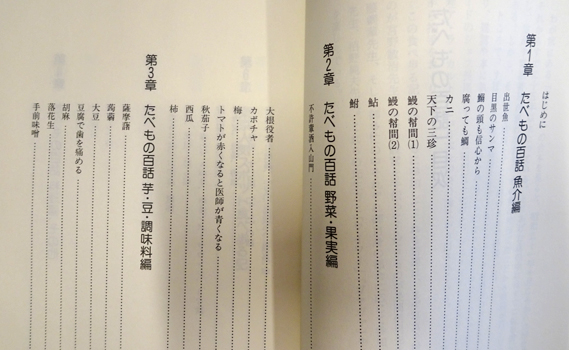 はじめに
第1章 たべもの百話 魚介編
出世魚
目黒のサンマ
鰯の頭も信心から
腐っても鯛
カニ
天下の三珍
鰻の幇間(1)
鰻の幇間(2)
鮎
鮒
第2章 たべもの百話 野菜・果実編
不許葷酒入山門
大根役者
カボチャ
梅
トマトが赤くなると医師が青くなる
秋茄子
西瓜
柿
第3章 たべもの百話 芋・豆・調味料編
薩摩藷
蒟蒻
大豆
豆腐で歯を痛める
胡麻
落花生
手前味噌